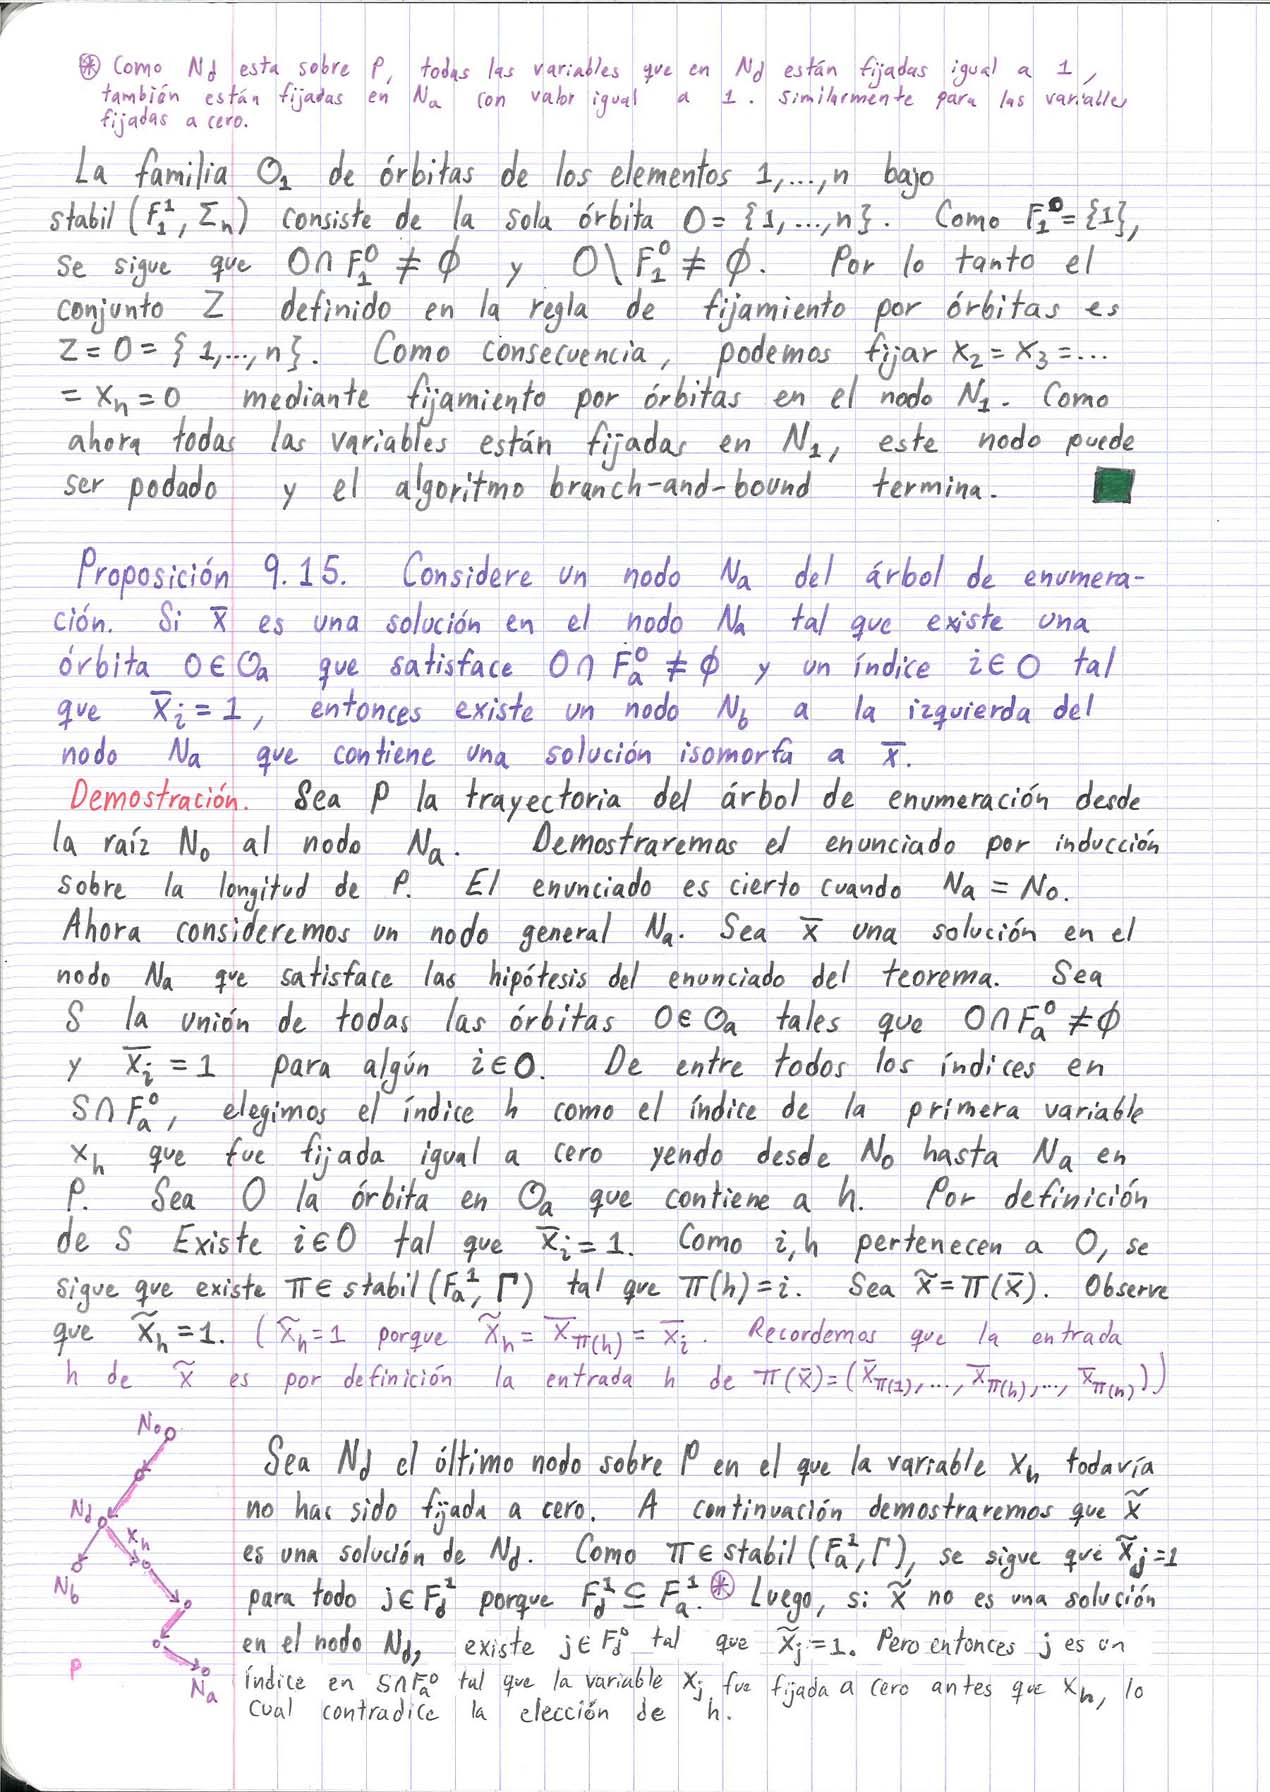 ⊛ Como N_d esta sobre P, todas las variables que en N_d están fijadas igual a 1,
también están fijadas en N_a con valor igual a 1. Similarmente para las variables
fijadas a cero.
La familia O_1 de órbitas de los elementos 1,...,n bajo
stabil(F_1^1, Σ_n) consiste de la sola órbita O = {1,...,n}. Como F_1^0 = {1},
se sigue que O∩F_1^0 ≠ ∅ y O\F_1^0 ≠ ∅. Por lo tanto el
conjunto Z definido en la regla de fijamiento por órbitas es
Z = O = {1,...,n}. Como consecuencia, podemos fijar x_2 = x_3 = ...
= x_n = 0 mediante fijamiento por órbitas en el nodo N_1. Como
ahora todas las variables están fijadas en N_1, este nodo puede
ser podado y el algoritmo branch-and-bound termina.
Proposición 9.15. Considere un nodo N_a del árbol de enumera-
ción. Si x̄ es una solución en el nodo N_a tal que existe una
órbita O∈O_a que satisface O∩F_a^0 ≠ ∅ y un índice i∈O tal
que x̄_i = 1, entonces existe un nodo N_b a la izquierda del
nodo N_a que contiene una solución isomorfa a x̄.
Demostración. Sea P la trayectoria del árbol de enumeración desde
la raíz N_0 al nodo N_a. Demostraremos el enunciado por inducción
sobre la longitud de P. El enunciado es cierto cuando N_a = N_0.
Ahora consideremos un nodo general N_a. Sea x̄ una solución en el
nodo N_a que satisface las hipótesis del enunciado del teorema. Sea
S la unión de todas las órbitas O∈O_a tales que O∩F_a^0 ≠ ∅
y x̄_i = 1 para algún i∈O. De entre todos los índices en
S∩F_a^0, elegimos el índice h como el índice de la primera variable
x_h que fue fijada igual a cero yendo desde N_0 hasta N_a en
P. Sea O la órbita en O_a que contiene a h. Por definición
de S Existe i∈O tal que x̄_i = 1. Como i,h pertenecen a O, se
sigue que existe π∈stabil(F_a^1, Γ) tal que π(h) = i. Sea x̃ = π(x̄). Observe
que x̃_h = 1. (x̃_h = 1 porque x̃_h = x̄_π(h) = x̄_i. Recordemos que la entrada
h de x̃ es por definición la entrada h de π(x̄) = (x̄_π(1),..., x̄_π(h),..., x̄_π(n)))
N_0
Sea N_d el último nodo sobre P en el que la variable x_h todavía
N_d
no has sido fijada a cero. A continuación demostraremos que x̃
x_h
es una solución de N_d. Como π∈stabil(F_a^1, Γ), se sigue que x̃_j = 1
N_b
para todo j∈F_d^1 porque F_d^1 ⊆ F_a^1. ⊛ Luego, si x̃ no es una solución
en el nodo N_d, existe j∈F_d^0 tal que x̃_j = 1. Pero entonces j es un
P
índice en S∩F_a^0 tal que la variable x_j fue fijada a cero antes que x_h, lo
N_a
cual contradice la elección de h.